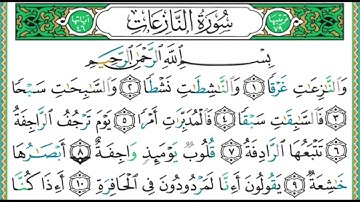 سُورَةُ النَّازِعَاتِ
بِسْمِ اللَّهِ الرَّحْمَٰنِ الرَّحِيمِ
وَالنَّازِعَاتِ غَرْقًا ﴿١﴾ وَالنَّاشِطَاتِ نَشْطًا ﴿٢﴾ وَالسَّابِحَاتِ سَبْحًا
﴿٣﴾ فَالسَّابِقَاتِ سَبْقًا ﴿٤﴾ فَالْمُدَبِّرَاتِ أَمْرًا ﴿٥﴾ يَوْمَ تَرْجُفُ الرَّاجِفَةُ
﴿٦﴾ تَتْبَعُهَا الرَّادِفَةُ ﴿٧﴾ قُلُوبٌ يَوْمَئِذٍ وَاجِفَةٌ ﴿٨﴾ أَبْصَارُهَا
خَاشِعَةٌ ﴿٩﴾ يَقُولُونَ أَءِنَّا لَمَرْدُودُونَ فِي الْحَافِرَةِ ﴿١٠﴾ أَءِذَا كُنَّا